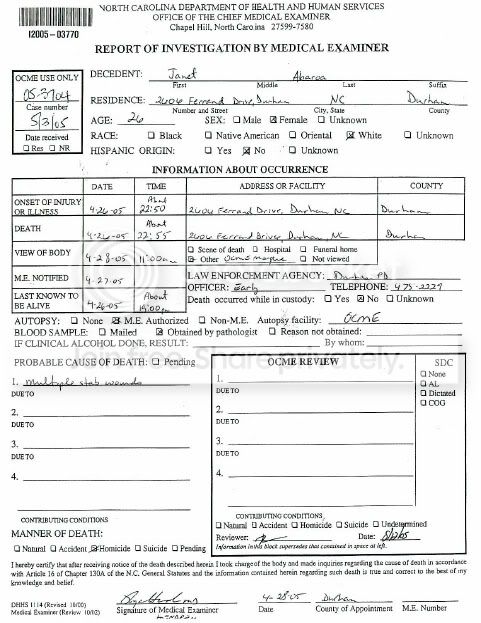 NORTH CAROLINA DEPARTMENT OF HEALTH AND HUMAN SERVICES
OFFICE OF THE CHIEF MEDICAL EXAMINER
Chapel Hill, North Carolina 27599-7580
I2005-03770
REPORT OF INVESTIGATION BY MEDICAL EXAMINER
OCME USE ONLY
05-3704
Case number
5/3/05
Date received
Res NR
DECEDENT: Janet Abaroa
First Middle Last Suffix
RESIDENCE: 2606 Ferrand Drive, Durham NC Durham
Number and Street City, State County
AGE: 26 SEX: Male Female Unknown
RACE: Black Native American Oriental White Unknown
HISPANIC ORIGIN: Yes No Unknown
INFORMATION ABOUT OCCURRENCE
DATE TIME ADDRESS OR FACILITY COUNTY
ONSET OF INJURY OR ILLNESS 4-26-05 About 22:50 2606 Ferrand Drive, Durham NC Durham
DEATH 4-26-05 About 22:55 2606 Ferrand Drive, Durham NC Durham
VIEW OF BODY 4-28-05 11:00am Scene of death Hospital Funeral home
Other OCME morgue Not viewed
M.E. NOTIFIED 4-27-05 LAW ENFORCEMENT AGENCY: Durham PD
OFFICER: Early TELEPHONE: 475-2229
LAST KNOWN TO BE ALIVE 4-26-05 About Death occurred while in custody: Yes No Unknown
AUTOPSY: None M.E. Authorized Non-M.E. Autopsy facility: OCME
BLOOD SAMPLE: Mailed Obtained by pathologist Reason not obtained:
IF CLINICAL ALCOHOL DONE, RESULT: By whom:
PROBABLE CAUSE OF DEATH: Pending
1. multiple stab wounds
DUE TO
2.
DUE TO
3.
DUE TO
4.
CONTRIBUTING CONDITIONS
MANNER OF DEATH:
Natural Accident Homicide Suicide Pending
OCME REVIEW
1.
DUE TO
2.
DUE TO
3.
DUE TO
4.
CONTRIBUTING CONDITIONS
Natural Accident Homicide Suicide Undetermined
Reviewer: Date:
Information in this block supersedes that contained in space at left.
SDC
None
AL
Dictated
COG
I hereby certify that after receiving notice of the death described herein I took charge of the body and made inquiries regarding the cause of death in accordance
with Article 16 of Chapter 130A of the N.C. General Statutes and the information contained herein regarding such death is true and correct to the best of my
knowledge and belief.
DHHS 1114 (Revised 10/00)
Medical Examiner (Review 10/02)
Signature of Medical Examiner
4-28-05
Date
Durham
County of Appointment
M.E. Number